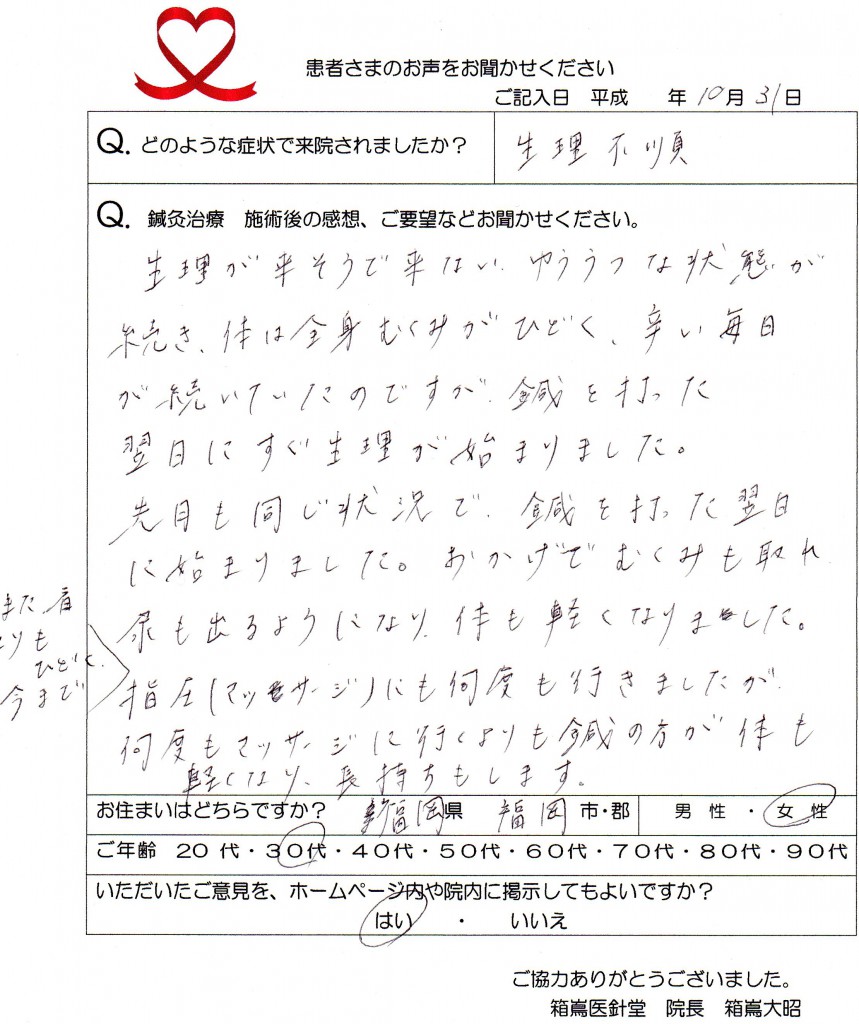 患者さまのお声をお聞かせください
ご記入日 平成 年 10月 31日
Q. どのような症状で来院されましたか？
生理不順
Q. 鍼灸治療 施術後の感想、ご要望などお聞かせください。
生理が来そうで来ない、ゆううつな状態が
続き、体は全身むくみがひどく、辛い毎日
が続いていたのですが、鍼を打った
翌日にすぐ生理が始まりました。
先月も同じ状況で、鍼を打った翌日
に始まりました。おかげでむくみも取れ
尿も出るようになり、体も軽くなりました。
また、肩
こりも
ひどく、
今まで
指圧(マッサージ)にも何度も行きましたが、
何度もマッサージに行くよりも鍼の方が体も
軽くなり、長持ちもします。
お住まいはどちらですか？ 福岡県 福岡 市・郡 男性 ・ 女性
ご年齢 20代・30代・40代・50代・60代・70代・80代・90代
いただいたご意見を、ホームページ内や院内に掲示してもよいですか？
はい ・ いいえ
ご協力ありがとうございました。
箱嶌医針堂 院長 箱嶌大昭